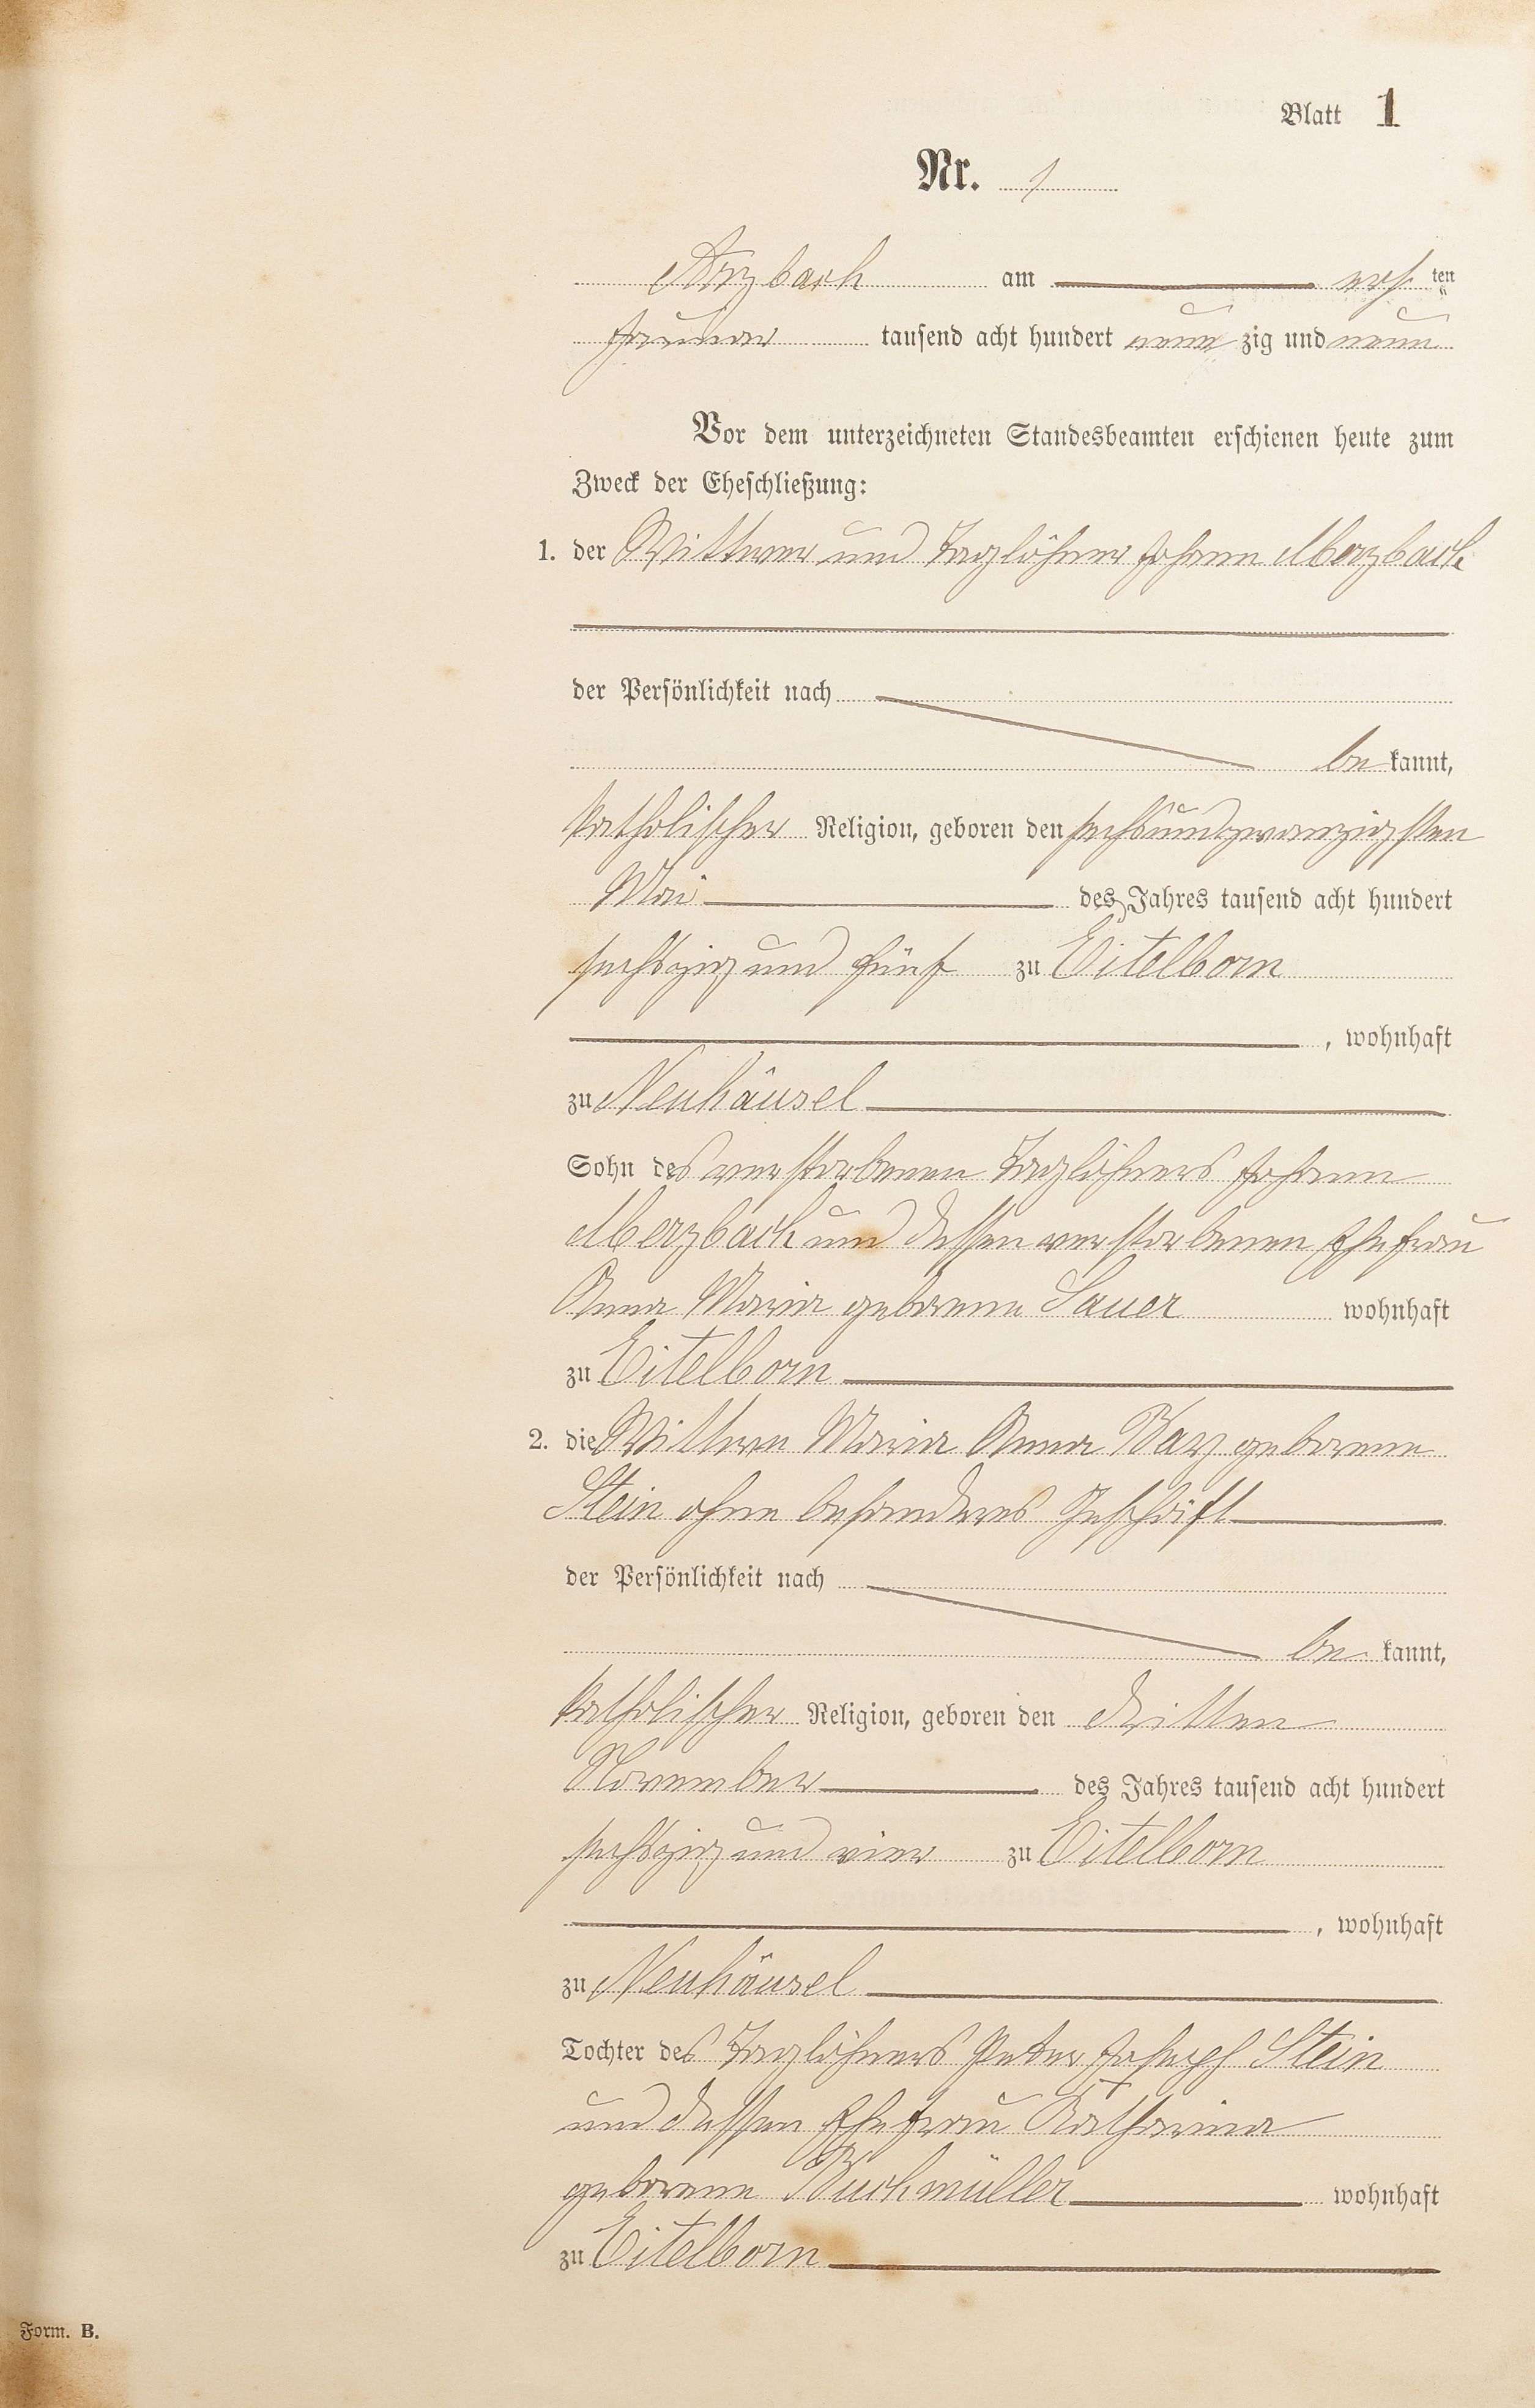 Blatt 1
Nr. 1
Arzbach am ersten
Januar tausend acht hundert neun zig und neun
Vor dem unterzeichneten Standesbeamten erschienen heute zum
Zweck der Eheschließung:
1. der Wittwer und Taglöhner Johann Merzbach
der Persönlichkeit nach
be kannt,
katholischer Religion, geboren den sechsundzwanzigsten
Mai des Jahres tausend acht hundert
sechszig und fünf zu Eitelborn
, wohnhaft
zu Neuhäusel
Sohn des verstorbenen Taglöhners Johann
Merzbach und dessen verstorbenen Ehefrau
Anna Maria geborene Sauer wohnhaft
zu Eitelborn
2. die Wittwe Maria Anna geborene
Stein ohne besonderes Geschäft
der Persönlichkeit nach
be kannt,
katholischer Religion, geboren den dritten
November des Jahres tausend acht hundert
sechszig und vier zu Eitelborn
, wohnhaft
zu Neuhäusel
Tochter des Taglöhners Peter Joseph Stein
und dessen Ehefrau Katharina
geborene Buchmüller wohnhaft
zu Eitelborn
Form. B.